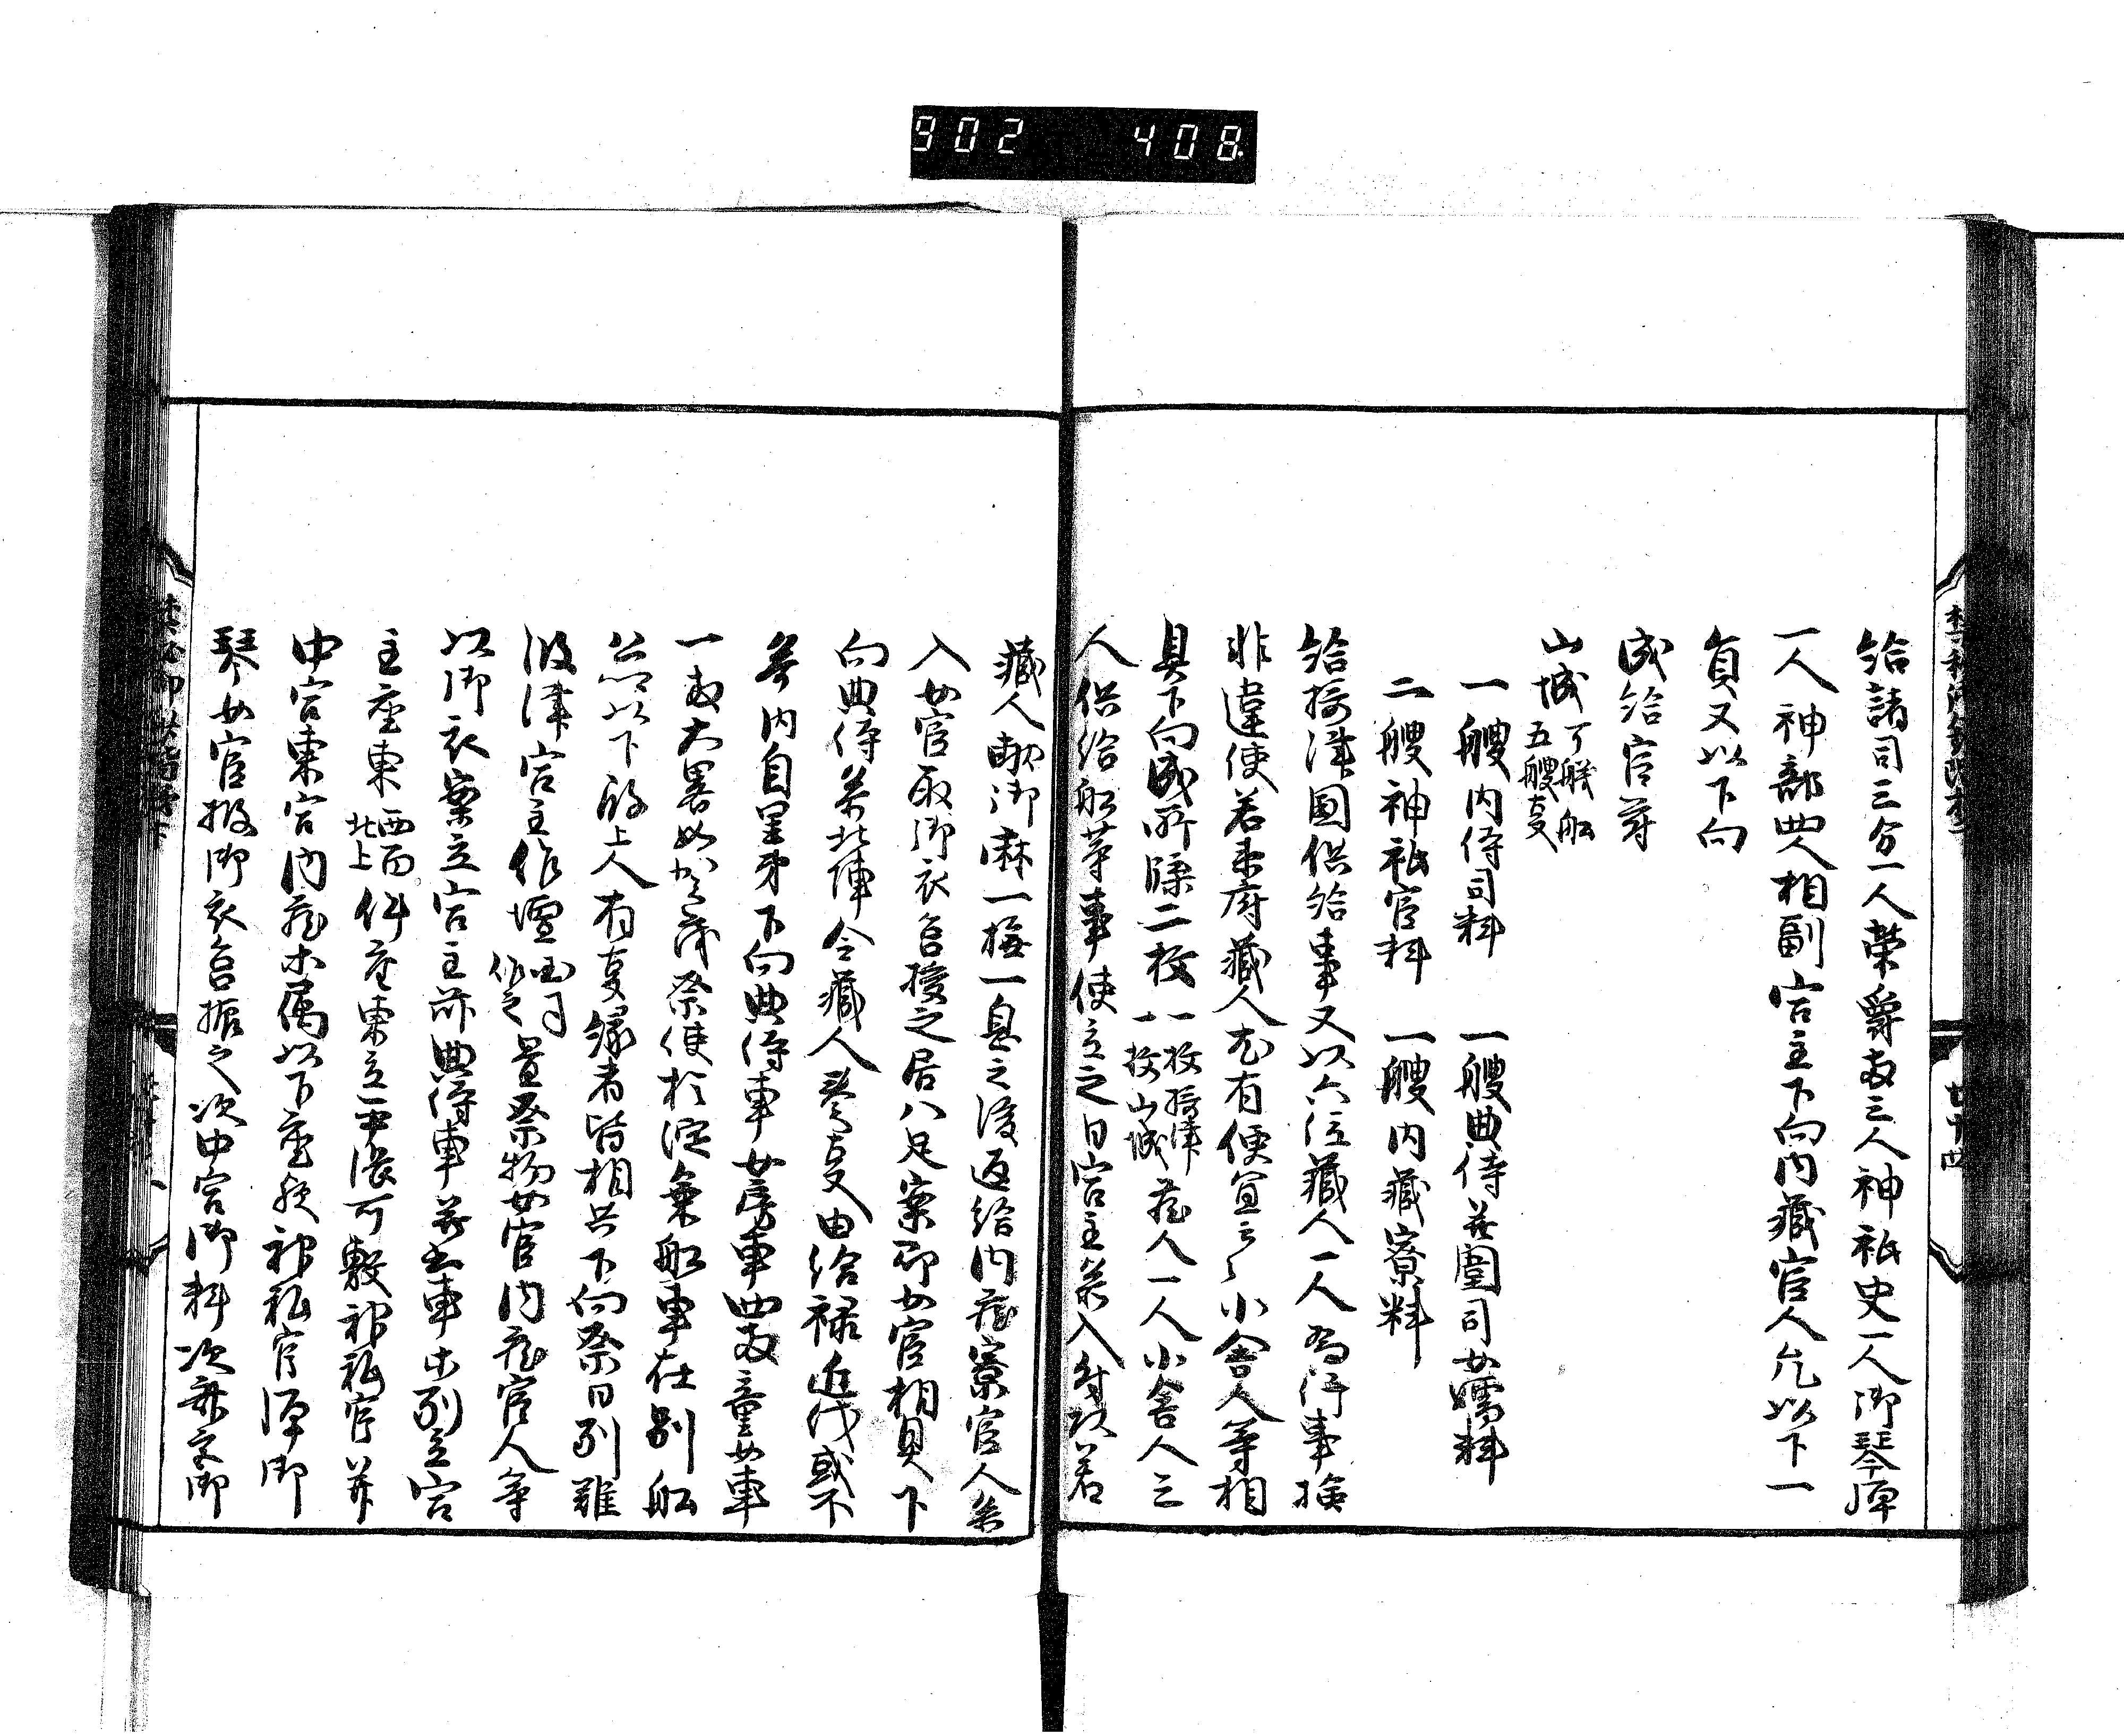 902 408
給諸司三分一人栄爵両三人神祇史一人御琴弾
一人神部四人相副宮主下向内藏官人允以下一
員又以下向
成給官苻
山城可儀船五艘事
一艘内侍司料 一艘典侍并闈司女嬬料
二艘神祇官料 一艘内藏寮料
給摂津国供給事又以六位藏人一人為行事検
非違使若東府藏人尤有便宜云々小舎人等相
具下向成所牒二枚一枚摂津一枚山城 藏人一人小舎人三
人供給船等事使立之日宮主参入付以若
藏人献御麻一撫一息之後返給内藏寮官人参
入女官取御衣筥授之居八足案即女官相具下
向典侍参北陣令藏人奏事由給禄近代或不
参内自里第下向典侍車女房車四両童女車
一両大略如賀茂祭使於淀乗船車在別船
公卿以下殿上人有事縁者皆相共下向祭日到難
波津宮主作壇国司作之置祭物女官内藏官人等
以御衣案立宮主前典侍車并出車等列立宮
主座東西面北上件座東立平張可敷神祇官并
中宮東宮内藏等属以下座於神祇官弾御
琴女官披御衣筥振之次中宮御料次東宮御